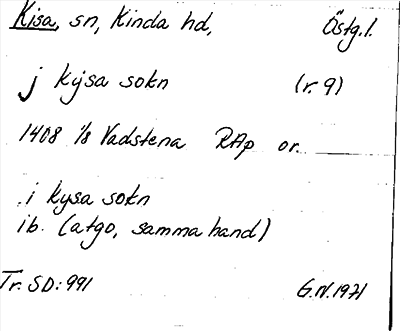 Kisa, sn, Kinda hd, Östg.l.
j kysa sokn (r. 9)
1408 1/8 Vadstena RAp or.
i kysa sokn
ib. (atgo, samma hand)
Tr. SD: 991 G.N. 1971